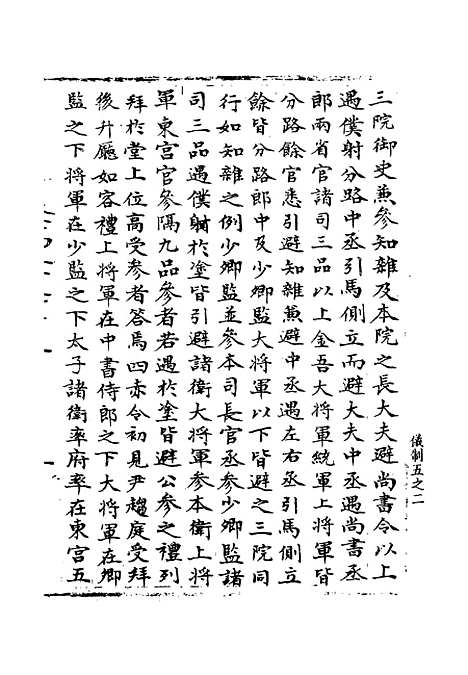 三院御史兼參知雜及本院之長大夫避尚書令以上
遇僕射分路中丞引馬側立而避大夫中丞遇尚書丞
郎兩省官諸司三品以上金吾大將軍統軍上將軍皆
分路餘官悉引避知雜兼避中丞遇左右丞引馬側立
餘皆分路郎中及少卿監大將軍以下皆避之三院同
行如知雜之例少卿監並參本司長官丞參少卿監諸
司三品遇僕射於塗皆引避諸衛大將軍參本衛上將
軍東宮官參隔九品參者若遇於塗皆避公參之禮列
拜於堂上位高受參者答焉四赤令初見尹趨庭受拜
後升廳如客禮上將軍在中書侍郎之下大將軍在卿
監之下將軍在少監之下太子諸衛率府率在東宮五
儀制五之二